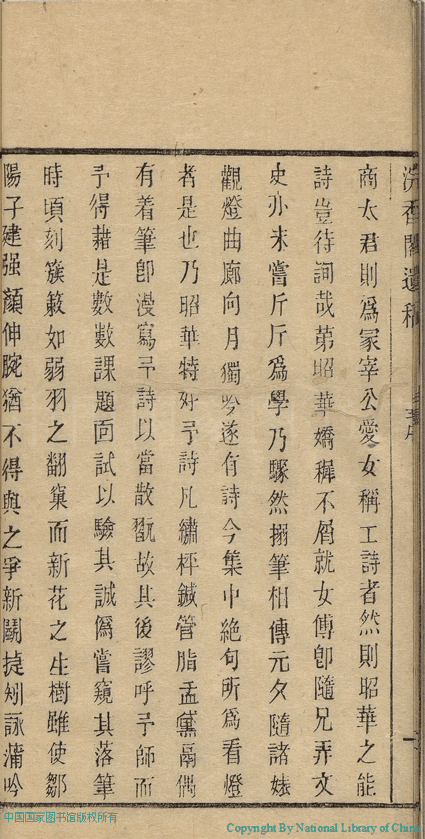 浣香閣遺稿
商太君則爲冢宰公愛女稱工詩者然則昭華之能
詩豈待詢哉第昭華嬌穉不屑就女傅卽隨兄弄文
史亦未嘗斤斤爲學乃驟然搦筆相傳元夕隨諸婊
觀燈曲廊向月獨吟遂有詩今集中絶句所爲看燈
者是也乃昭華特好予詩凡繡枰鍼管脂盂黛鬲偶
有着筆卽漫寫予詩以當散翫故其後謬呼予師而
予得藉是數數課題面試以驗其誠僞嘗窺其落筆
時頃刻簇簌如弱羽之翻窠而新花之生樹雖使鄒
陽子建强顏伸腕猶不得與之爭新鬭捷矧詠蒲吟
中国国家图书馆版权所有
Copyright By National Library of China